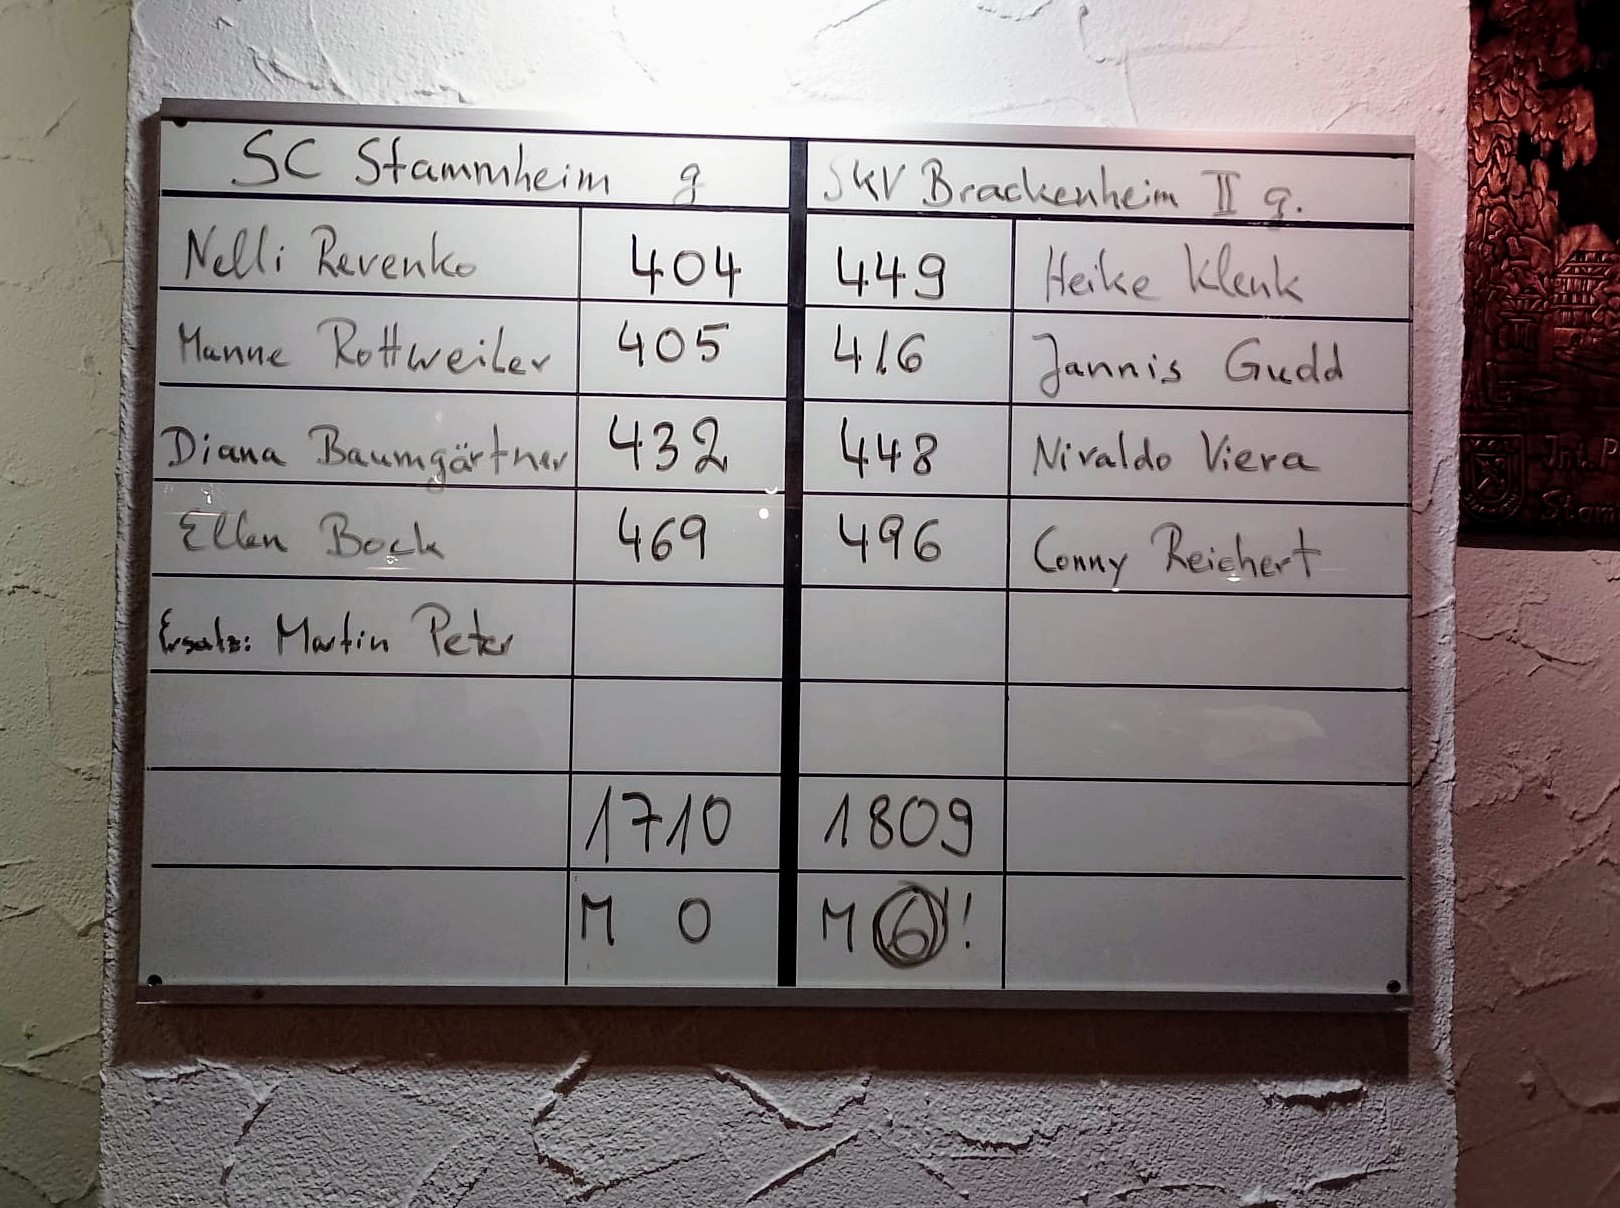 SC Stammheim g SKV Brackenheim II g.
Nelli Revenko 404 449 Heike Klenk
Manne Rottweiler 405 416 Jannis Gudd
Diana Baumgärtner 432 448 Nivaldo Viera
Ellen Bock 469 496 Conny Reichert
Ersatz: Martin Peter
1710 1809
M 0 M 6 !